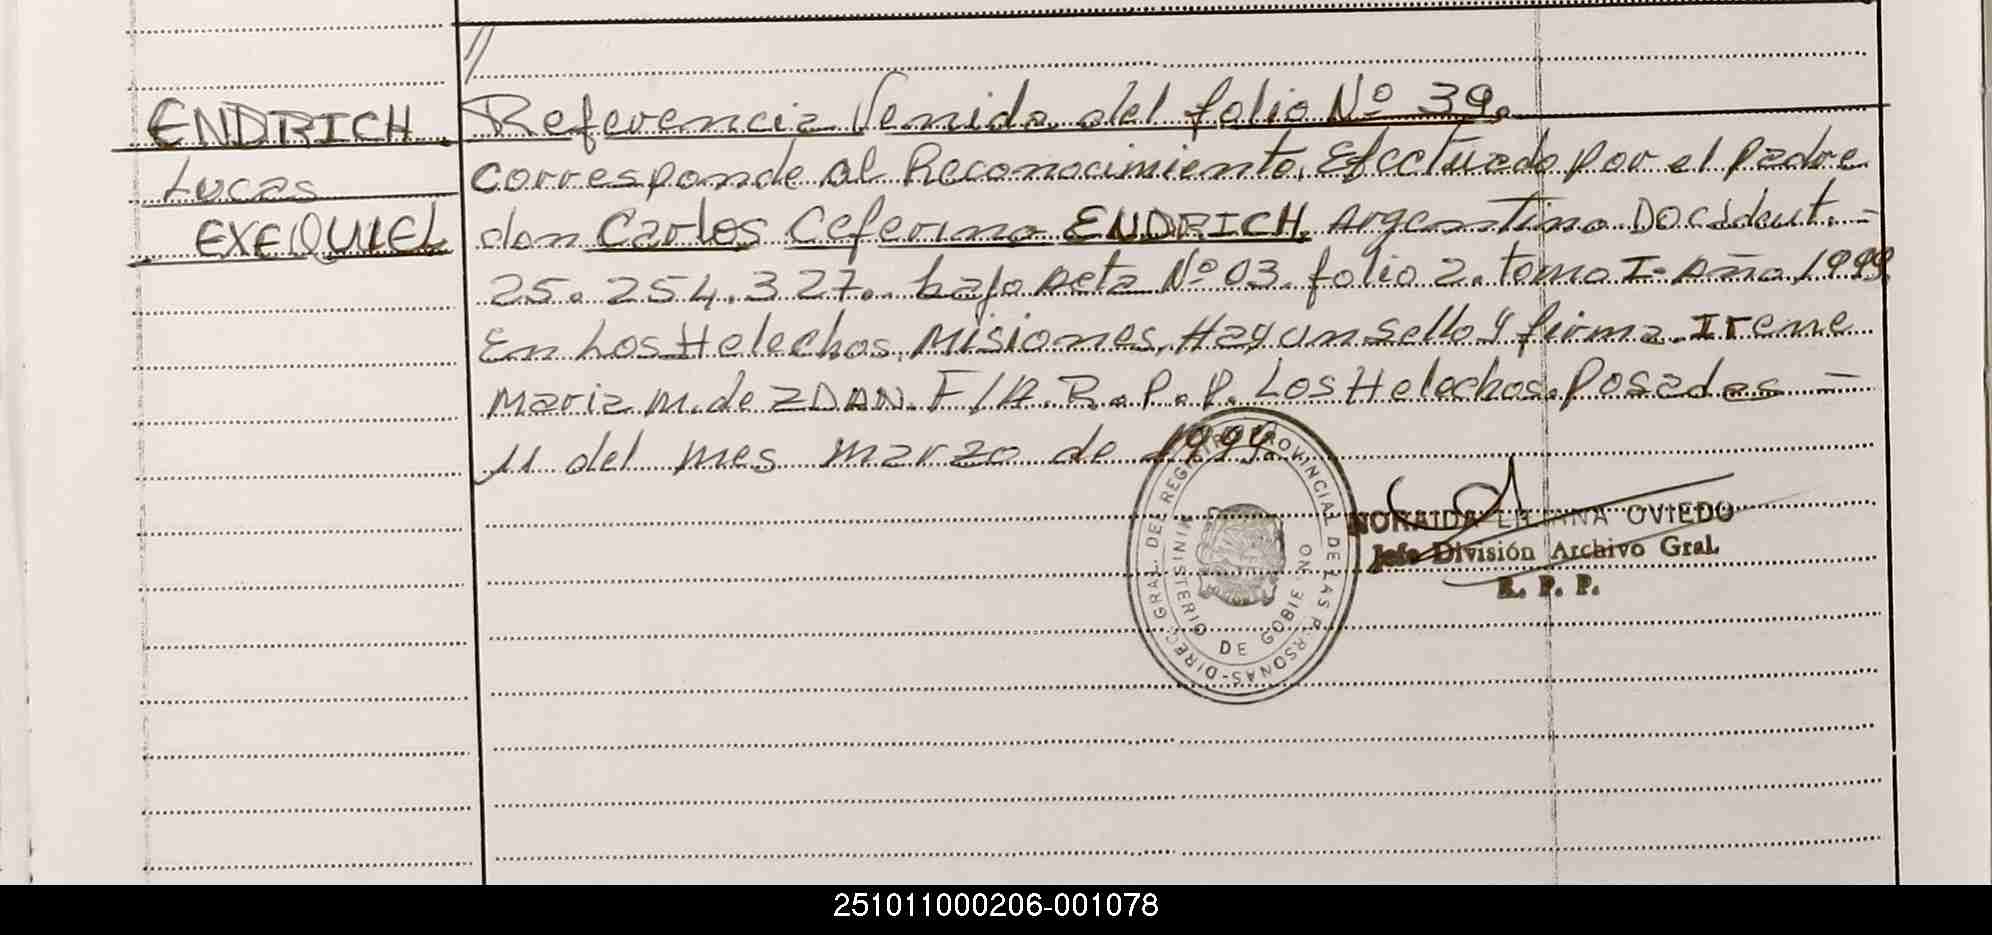 //
ENDRICH Referencia Venida del folio Nº 39.
Lucas corresponde al Reconocimiento, Efectuado por el padre
EXEQUIEL don Carlos Ceferino ENDRICH, Argentino Doc. Ident. =
25.254.327. bajo Acta Nº 03. folio 2. tomo I- Año 1999.
En Los Helechos, Misiones, Hay un sello y firma. Irene
Maria M. de ZDAN. F/A. R. P. P. Los Helechos. Posadas =
11 del mes marzo de 1999.
DIREC. GRAL. DEL REGISTRO PROVINCIAL DE LAS PERSONAS
MINISTERIO DE GOBIERNO
NORAIDA LILIANA OVIEDO
Jefe División Archivo Gral.
R. P. P.
251011000206-001078